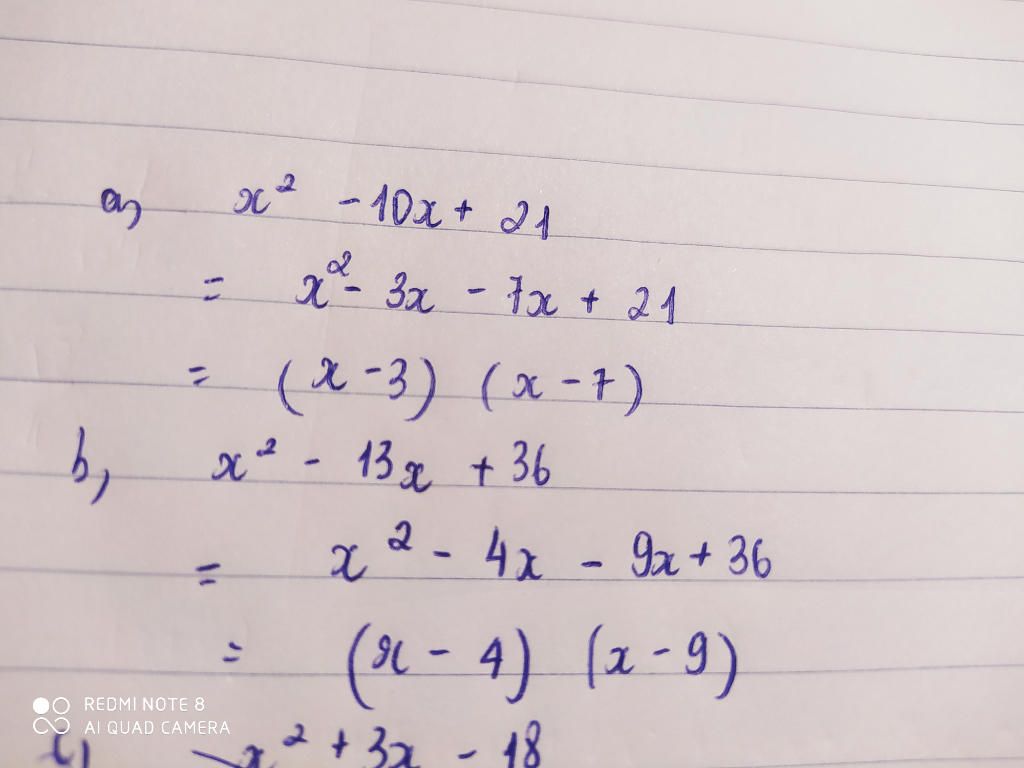 a, x² - 10x + 21
= x² - 3x - 7x + 21
= (x - 3) (x - 7)
b, x² - 13x + 36
= x² - 4x - 9x + 36
= (x - 4) (x - 9)
x² + 3x - 18
REDMI NOTE 8
AI QUAD CAMERA